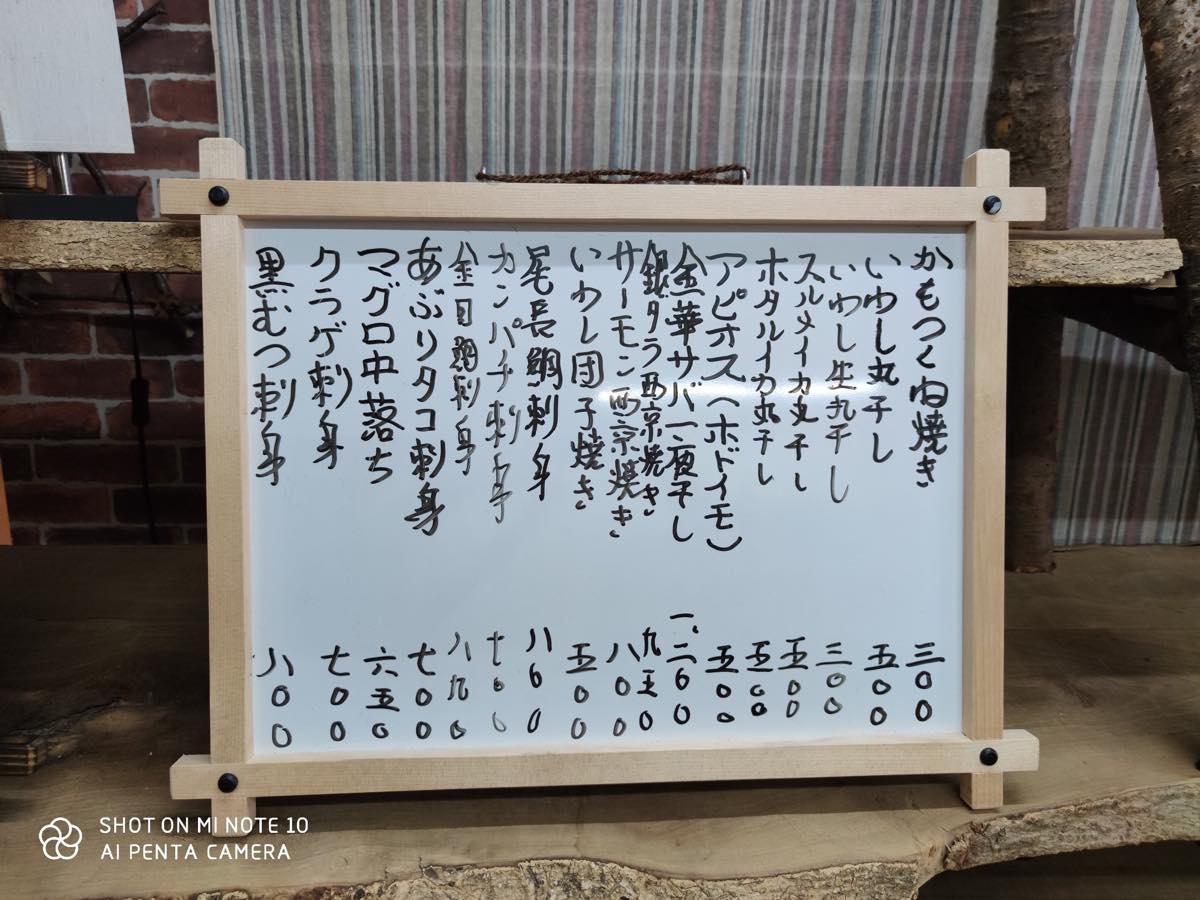 かもつくね焼き 三00
いわし丸干し 五00
いわし生丸干し 三00
スルメイカ丸干し 五00
ホタルイカ丸干し 五00
アピオス(ホドイモ) 五00
金華サバ一夜干し 一、二00
銀ダラ西京焼き 九五0
サーモン西京焼き 八00
いわし団子焼き 五00
尾長鯛刺身 八00
カンパチ刺身 七00
金目鯛刺身 八九0
あぶりタコ刺身 七00
マグロ中落ち 六五0
クラゲ刺身 七00
黒むつ刺身 八00
SHOT ON MI NOTE 10
AI PENTA CAMERA